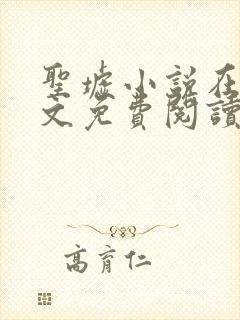 聖墟小説在
文免費閱讀
高育仁